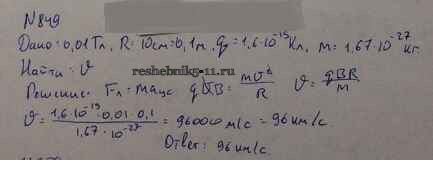 №849
Дано: 0,01 Тл, R = 10см = 0,1м, q = 1,6·10⁻¹⁹ Кл, m = 1,67·10⁻²⁷ кг.
Найти: υ
reshebnik5-11.ru
Решение: Fл = maцс qυB = mυ²/R υ = qBR/m
υ = 1,6·10⁻¹⁹·0,01·0,1 / 1,67·10⁻²⁷ = 96000 м/с = 96 км/с.
Ответ: 96 км/с.